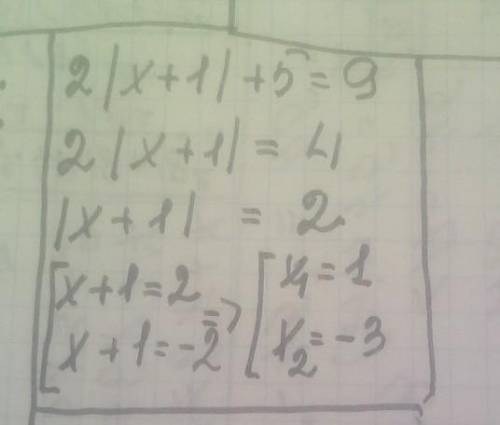 2|x+1|+5=9
2|x+1| = 4
|x+1| = 2
[x+1=2 => [x₁=1
[x+1=-2 [x₂=-3